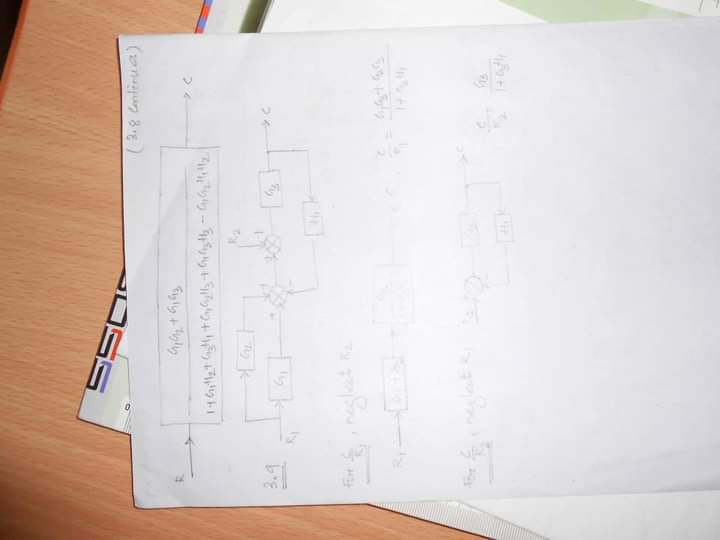 (3.8 Continued)
R G1G2 + G1G3 C
1 + G1H2 + G3H1 + G1G2H3 + G1G3H3 - G1G2H1H2
3.9
G2 R2
R1 G1 G3 C
H1
For C/R1, neglect R2
R1 C, C/R1 = G1G3 + G2G3 / 1 + G3H1
For C/R2, neglect R1
R2 C C/R2 = G3 / 1 + G3H1
H1